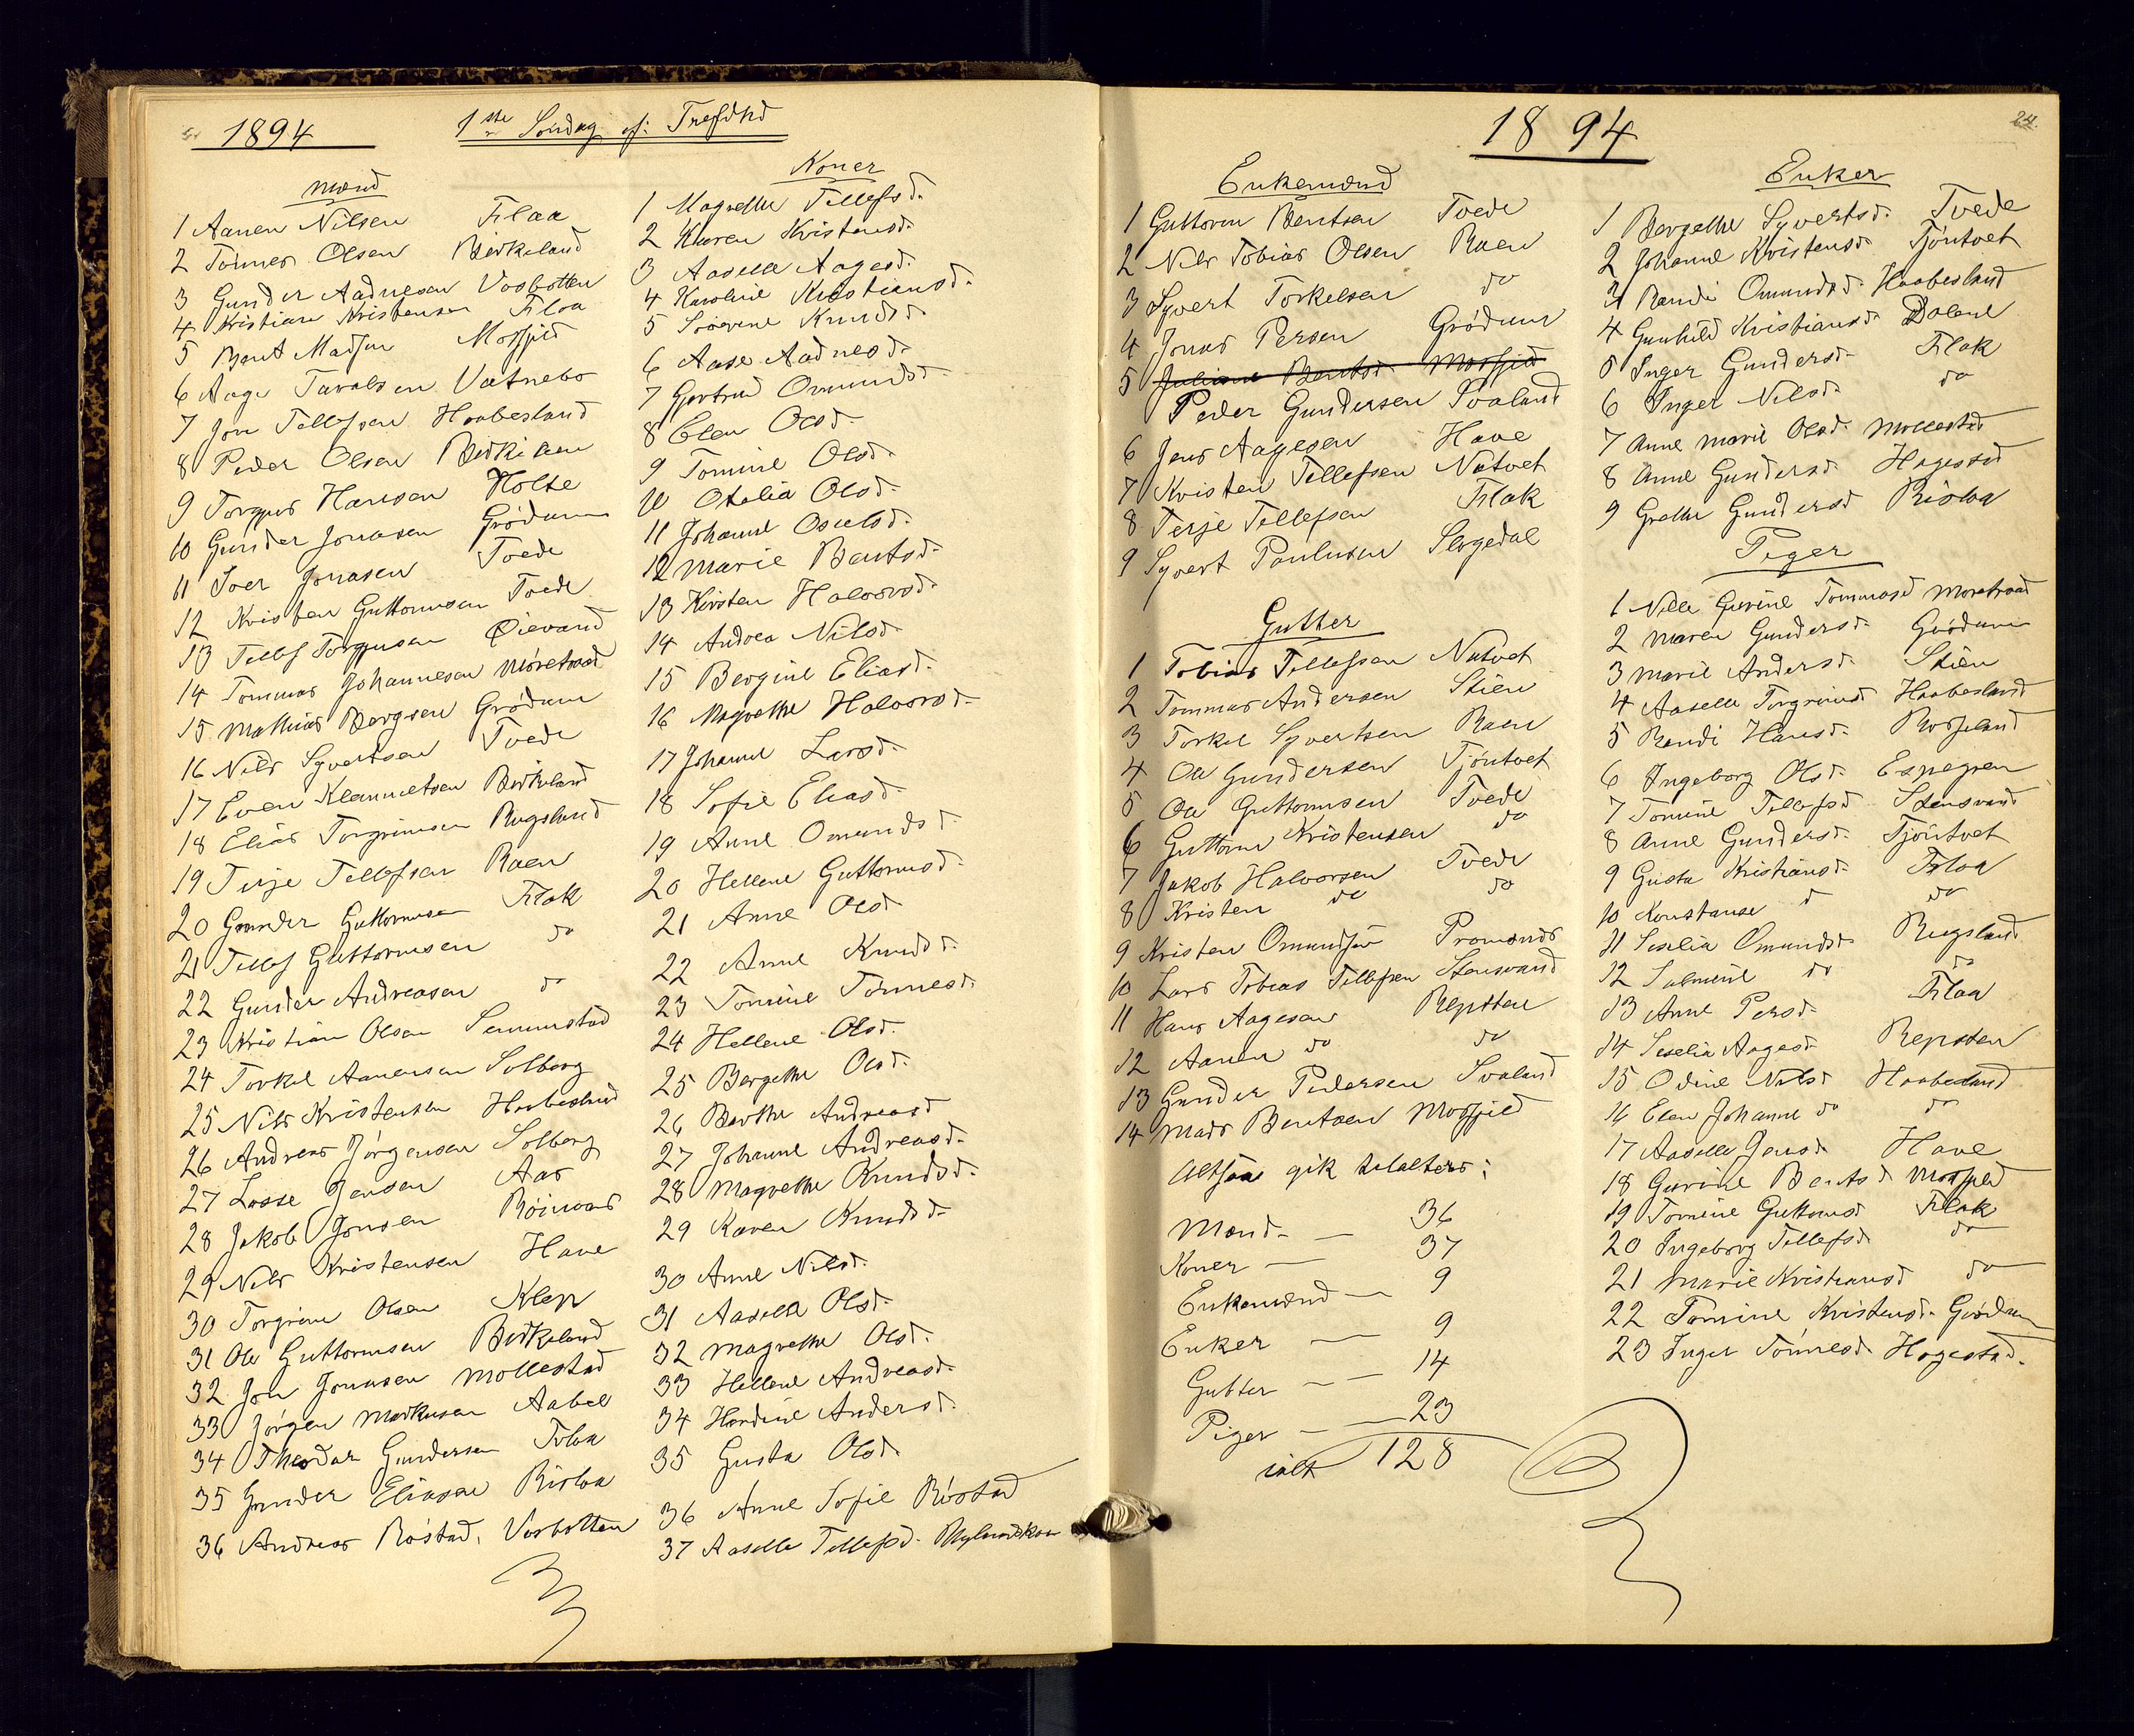 1894
1ste Søndag ef: Trefdhd
Mænd
1 Aanen Nilsen Flaa
2 Tønnes Olsen Birkeland
3 Gunder Aadnesen Vosbotten
4 Kristian Kristensen Floa
5 Bent Madsen Mosfjeld
6 Aage Tavalsen Vatnebo
7 Jon Tellefsen Haabesland
8 Peder Olsen Birkenæs
9 Torgus Hansen Holte
10 Gunder Jonasen Grødum
11 Iver Jonasen Tvede
12 Kristen Guttormsen Tvede
13 Tellef Torgusen Øievand
14 Tommas Johannesen Møretraad
15 Mathias Bergsen Grødum
16 Nils Syvertsen Tvede
17 Even Klemmetsen Birkeland
18 Elias Torgrimsen Rugsland
19 Terje Tellefsen Raen
20 Gunder Guttormsen Flak
21 Tellef Guttormsen do
22 Gunder Andreasen do
23 Kristian Olsen Senumstad
24 Torkel Aanensen Solberg
25 Nils Kristensen Haabesland
26 Andreas Jørgensen Solberg
27 Lasse Jensen Aas
28 Jakob Jonsen
29 Nils Kristensen Have
30 Torgrim Olsen Klep
31 Ole Guttormsen Birkeland
32 Jon Jonasen Mollestad
33 Jørgen Markusen Aabel
34 Theodor Gundersen Floa
35 Gunder Eliasen Risloa
36 Andreas Røstad, Vosbotten
Koner
1 Magrethe Tellefsd.
2 Karen Kristensd.
3 Aaselle Aagesd.
4 Karoline Kristiansd.
5 Severine Knudsd.
6 Aase Aadnesd.
7 Gjertrud Omundsd
8 Elen Olsd.
9 Tomine Olsd.
10 Otalia Olsd.
11 Johanne Osulsd.
12 Marie Bentsd.
13 Kirsten Halvorsd.
14 Andrea Nilsd.
15 Bergine Eliasd.
16 Magrethe Halvorsd.
17 Johanne Larsd.
18 Sofie Eliasd.
19 Anne Omundsd
20 Hellene Guttormsd.
21 Anne Olsd
22 Anne Knudsd.
23 Tomine Tønnesd.
24 Hellene Olsd.
25 Bergethe Olsd.
26 Berthe Andreasd
27 Johanne Andreasd.
28 Magrethe Knudsd.
29 Karen Knudsd.
30 Anne Nilsd.
31 Aaselle Olsd.
32 Magrethe Olsd.
33 Hellene Andreasd.
34 Hardine Andersd.
35 Gusta Olsd.
36 Anne Sofie Røstad
37 Aaselle Tellefsd.
1894
24.
Enkemænd
1 Guttorm Bentsen Tvede
2 Nils Tobias Olsen Raen
3 Syvert Torkelsen do
4 Jonas Persen Grødum
5 Juliane Bentsd. Mosfjeld
Peder Gundersen Svaland
6 Jens Aagesen Have
7 Kristen Tellefsen Natvet
8 Terje Tellefsen Flak
9 Syvert Paulusen Sægedal
Gutter
1 Tobias Tellefsen Natvet
2 Tommas Andersen Stien
3 Torkel Syvertsen Raen
4 Ole Gundersen Tjøntvet
5 Ole Guttormsen Tvede
6 Guttorm Kristensen do
7 Jakob Halvorsen Tvede
8 Kristen do do
9 Kristen Omundsen
10 Lars Tobias Tellefsen Stensvand
11 Hans Aagesen Repsten
12 Aanen do do
13 Gunder Pedersen Svaland
14 Mads Bentsen Mosfjeld
Altsaa gik talalters:
Mænd — 36
Koner — 37
Enkemænd — 9
Enker — 9
Gutter — 14
Piger — 23
ialt 128
Enker
1 Bergethe Syvertsd. Tvede
2 Johanne Kristensd. Tjøntvet
3 Randi Omundsd. Haabesland
4 Gunhild Kristiansd. Dolene
5 Inger Gundersd. Flak
6 Inger Nilsd. do
7 Anne Marie Olsd. Mollestad
8 Anne Gundersd. Hagestad
9 Grethe Gundersd Risloa
Piger
1 Nille Gurine Tommasd Møretraad
2 Maren Gundersd. Grødum
3 Marie Andersd. Stien
4 Aaselle Torgrimsd Haabesland
5 Randi Hansd. Rosseland
6 Ingeborg Olsd. Espegren
7 Tomine Tellefsd Stensvand
8 Anne Gundersd. Tjøntvet
9 Gusta Kristiansd. Floa
10 Konstanse d do
11 Seselia Omundsd. Rugsland
12 Salmine do do
13 Anne Persd. Flaa
14 Seselia Aagesd. Repsten
15 Odine Nilsd Haabesland
16 Elen Johanne do do
17 Aaselle Jensd. Have
18 Gurine Bentsd Mosfjeld
19 Tomine Guttormsd Flak
20 Ingeborg Tellefsd. do
21 Marie Kristiansd do
22 Tomine Kristensd. Grødum
23 Inger Tønnesd. Hagestad.